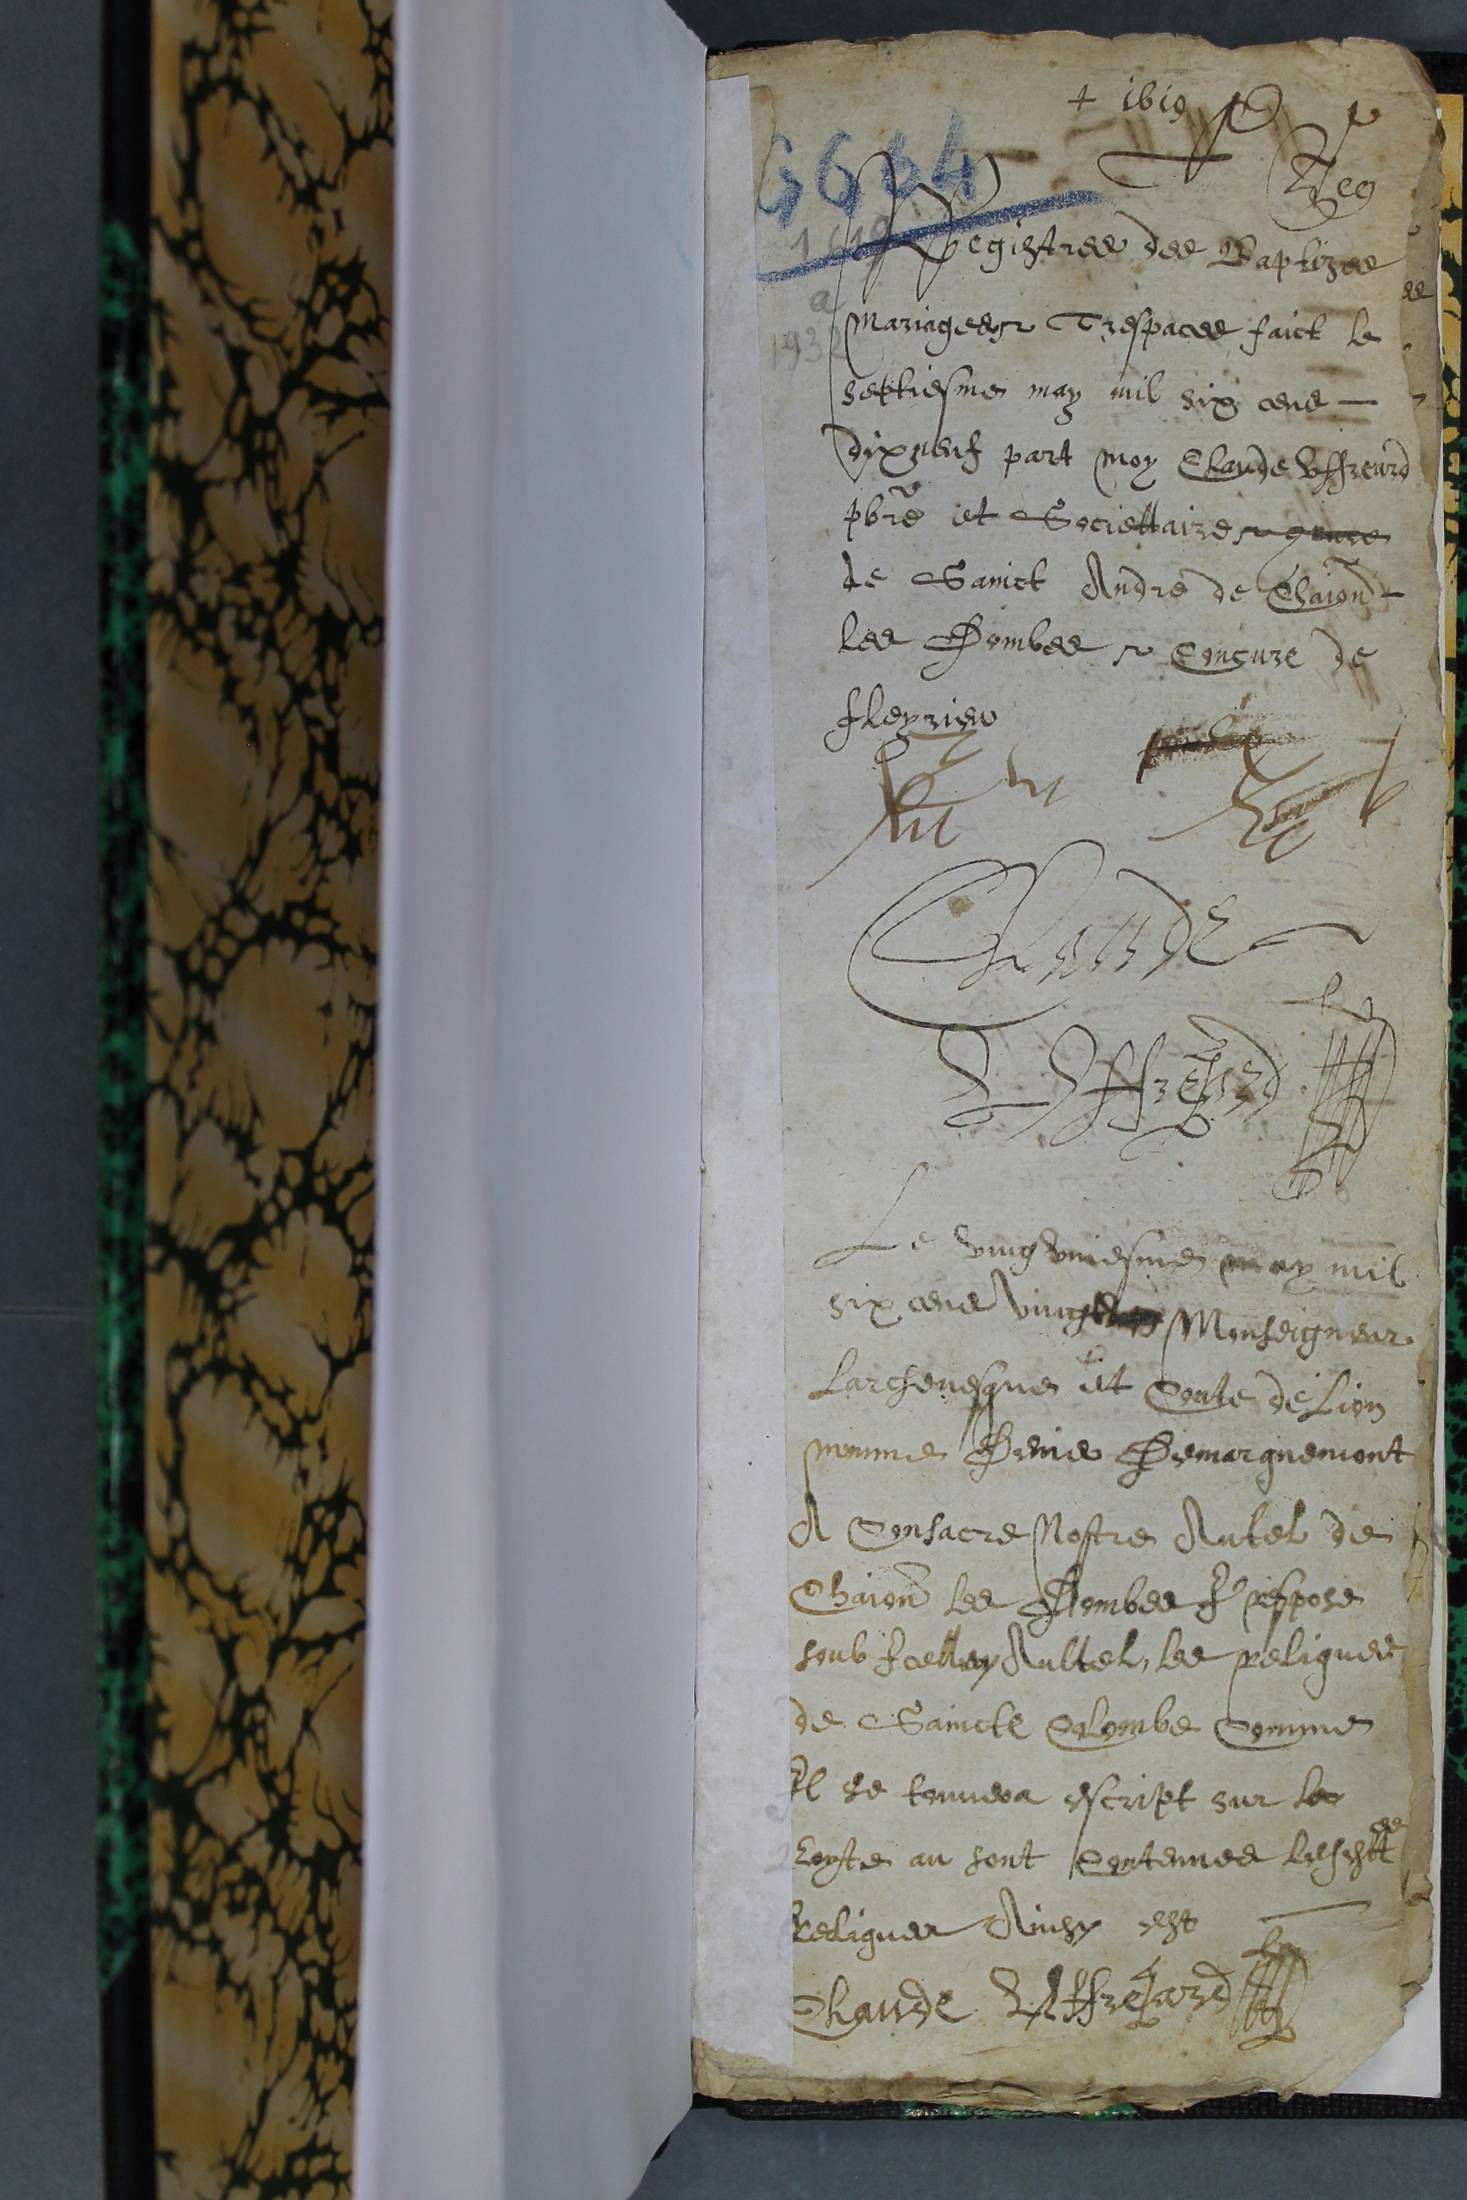 + 1619
Reg
G664
1619
a
1932
Registres des Baptizes
Mariages & Trespaces faict le
septiesme may mil six cens —
dixneuf part moy Claude Uffreard
pbre et Societtaire
de Sainct Andre de Chaion
les Dombes & Concure de
fleyrieu
Claude
Uffreard
Le vingt uniesme may mil
six cens vingt Monseigneur
Larchevesque et Conte de Lion
nomme Denis Demarquemont
A Consacre Nostre Autel de
Chaion les Dombes & repose
soub Icelluy Aultel, les reliques
de Saincte Colombe Comme
Il se trouvera escript sur le
coste au sont Contenues lesdittes
Reliques Ainsy est
Claude Uffreard